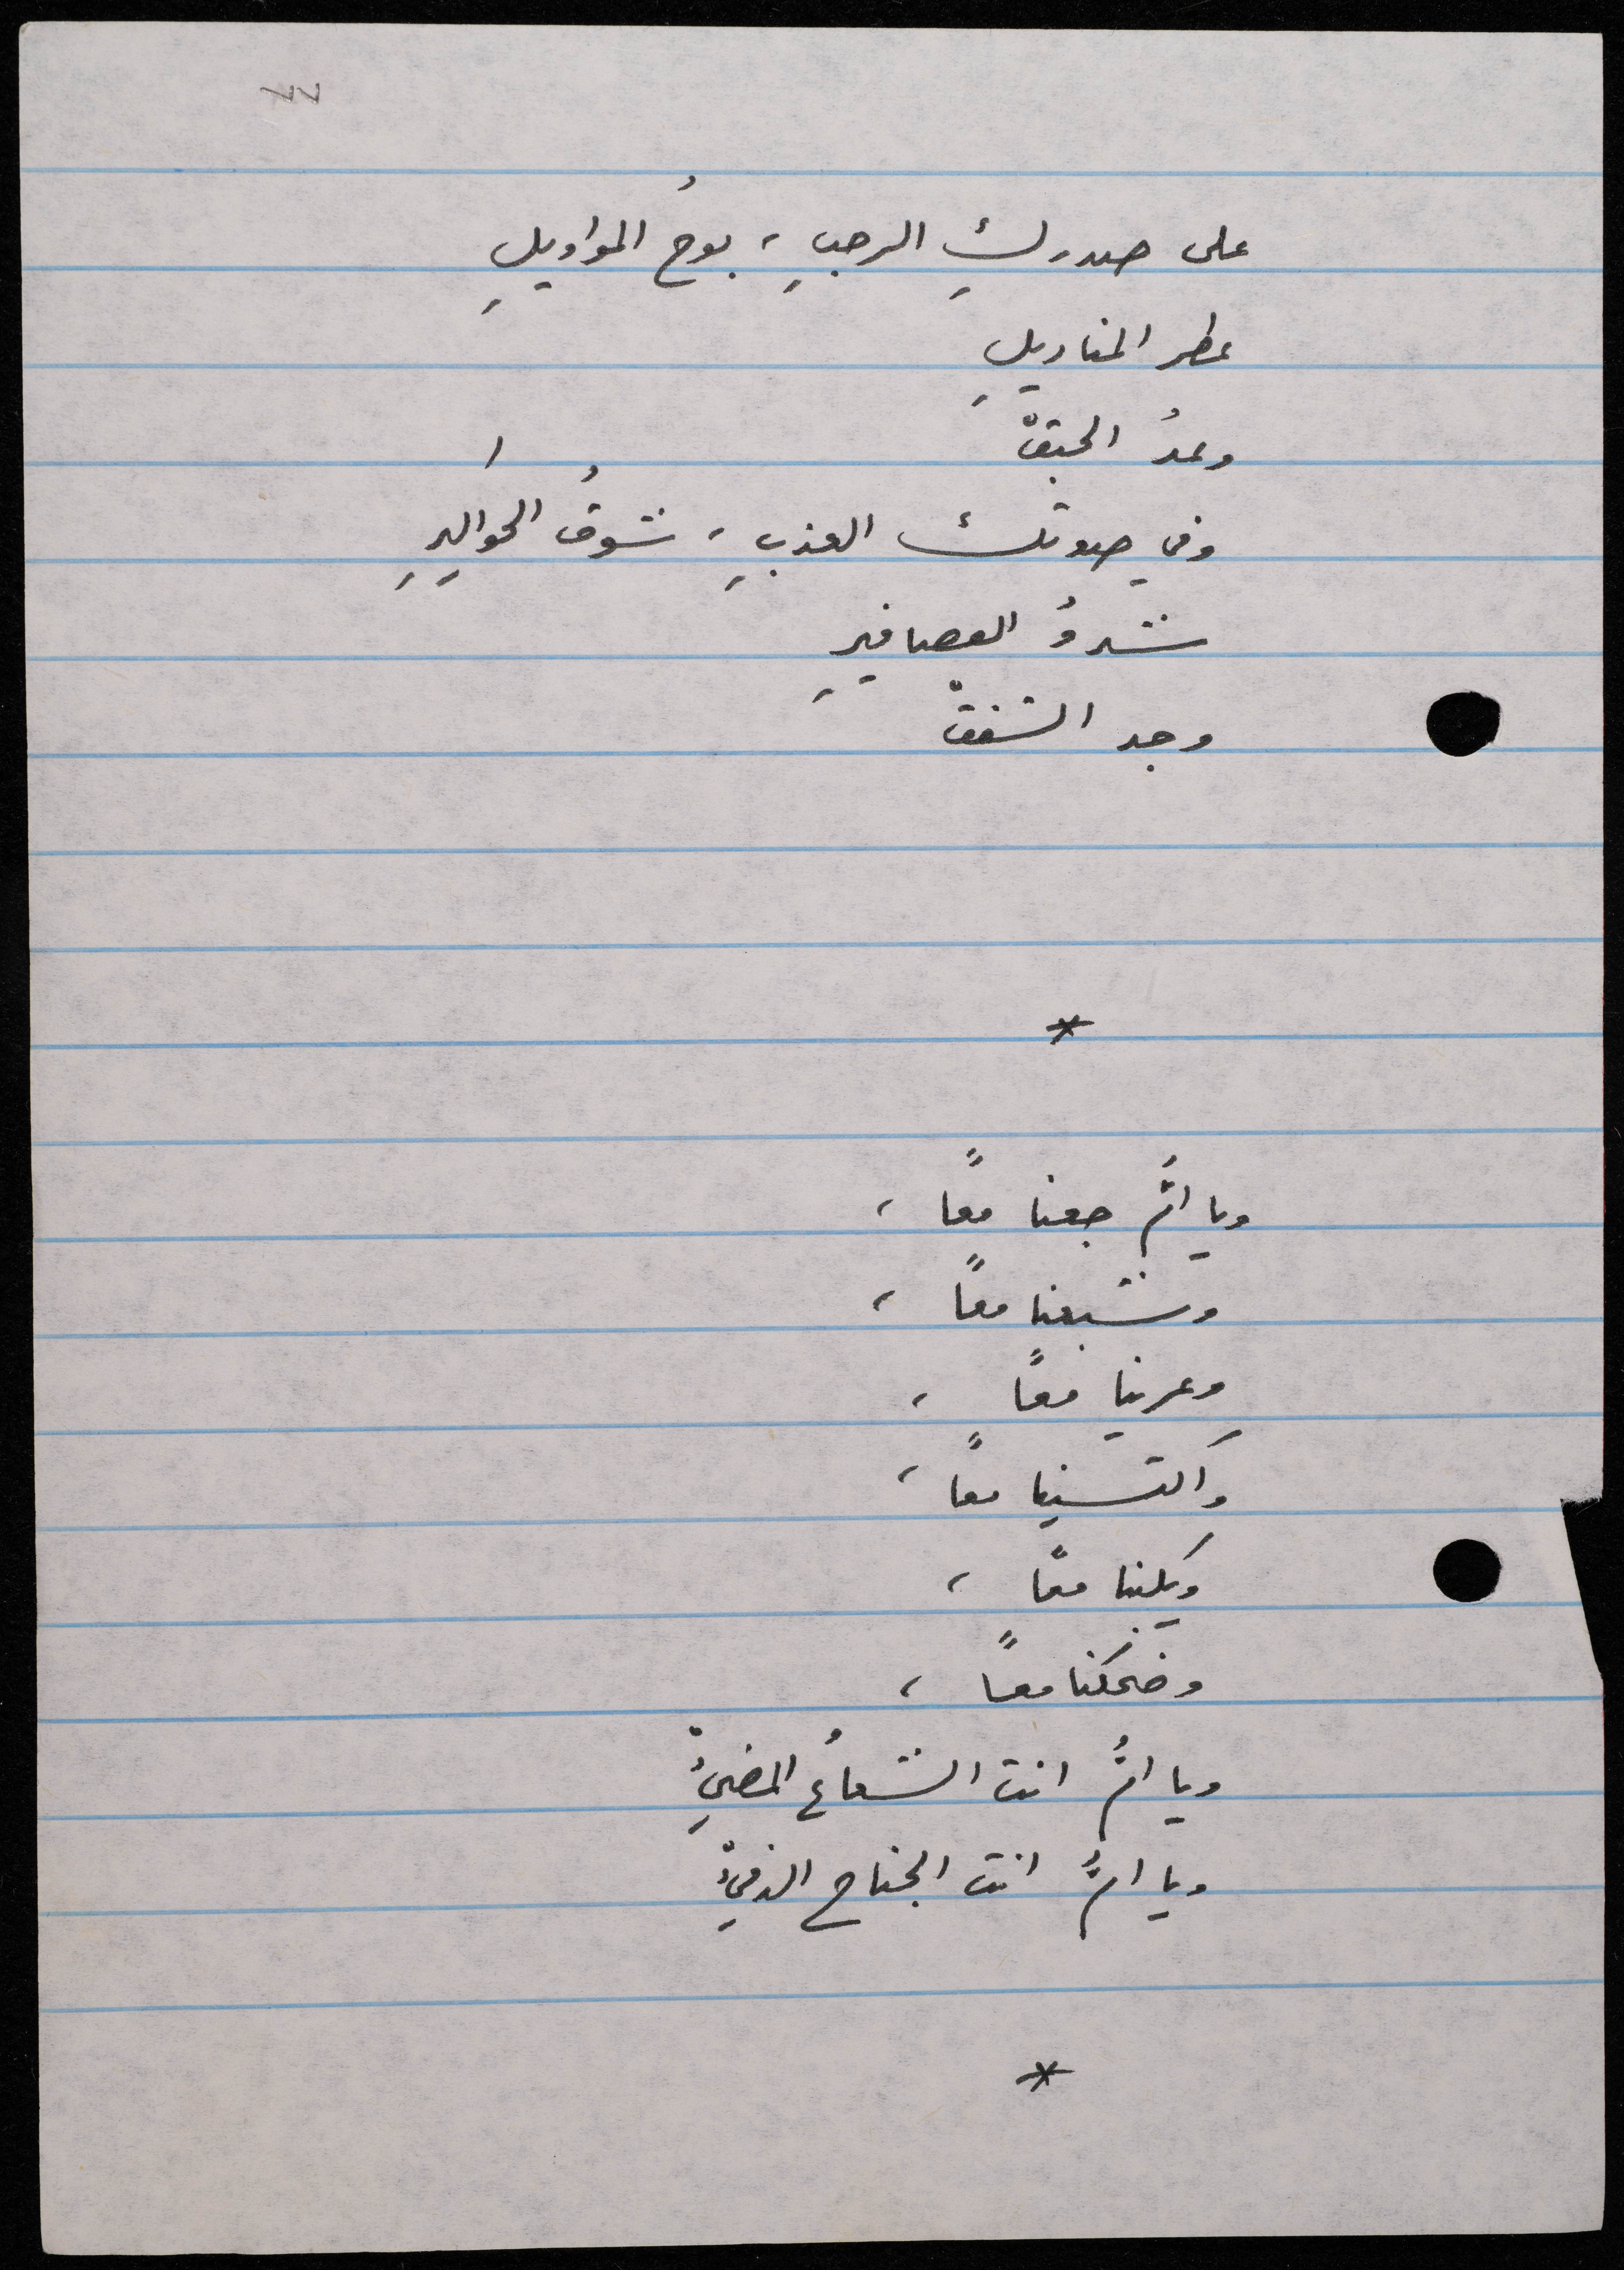 ٧٧
على صدركِ الرحبِ، بوحُ المواويلِ
عطر المناديلِ
وعدُ الحبقْ
وفي صوتك العذبِ، شوقُ الحواكيرِ
شدوُ العصافيرِ
وجد الشفقْ
*
ويا امُّ جعنا معًا،
وشبعنا معًا،
وعرينا معًا،
واكتسينا معًا،
وبكينا معًا،
وضحكنا معًا،
ويا امُّ انت الشعاعُ المضيءُ
ويا امُّ انت الجناح الدفيءُ
*